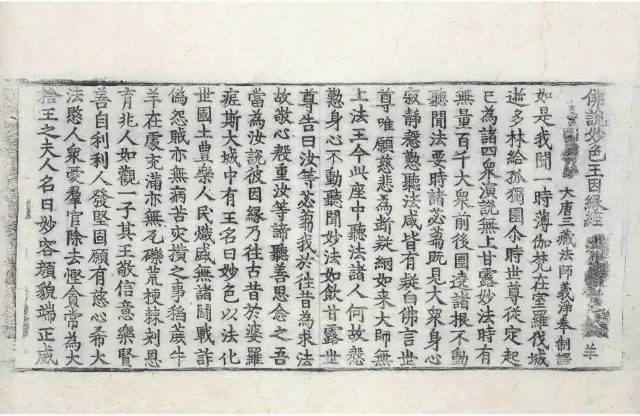 佛說妙色王因緣經 羊
大唐三藏法師義淨奉 制譯
如是我聞一時薄伽梵在室羅伐城
逝多林給孤獨園尒時世尊從定起
已為諸四衆演說無上甘露妙法時有
無量百千大衆前後圍遶諸根不動
聽聞法要時諸苾芻既見大衆身心
寂靜慇懃聽法咸皆有疑白佛言世
尊唯願慈悲為斷疑網如來大師無
上法王今此座中聽法諸人何故慇
懃身心不動聽聞妙法如飲甘露世
尊告曰汝等苾芻我於往昔為求法
故敬心殷重汝等諦聽善思念之吾
當為汝說彼因緣乃往古昔於婆羅
痆斯大城中有王名曰妙色以法化
世國土豐樂人民熾盛無諸鬪戰詐
偽怨賊亦無病苦災横之事稻蔗牛
羊在處充滿亦無瓦礫荒梗棘刺恩
育兆人如觀一子其王敬信意樂賢
善自利利人發堅固願有慈心希大
法愍人衆愛羣官除去慳貪常為大
捨王之夫人名曰妙容顏貌端正威